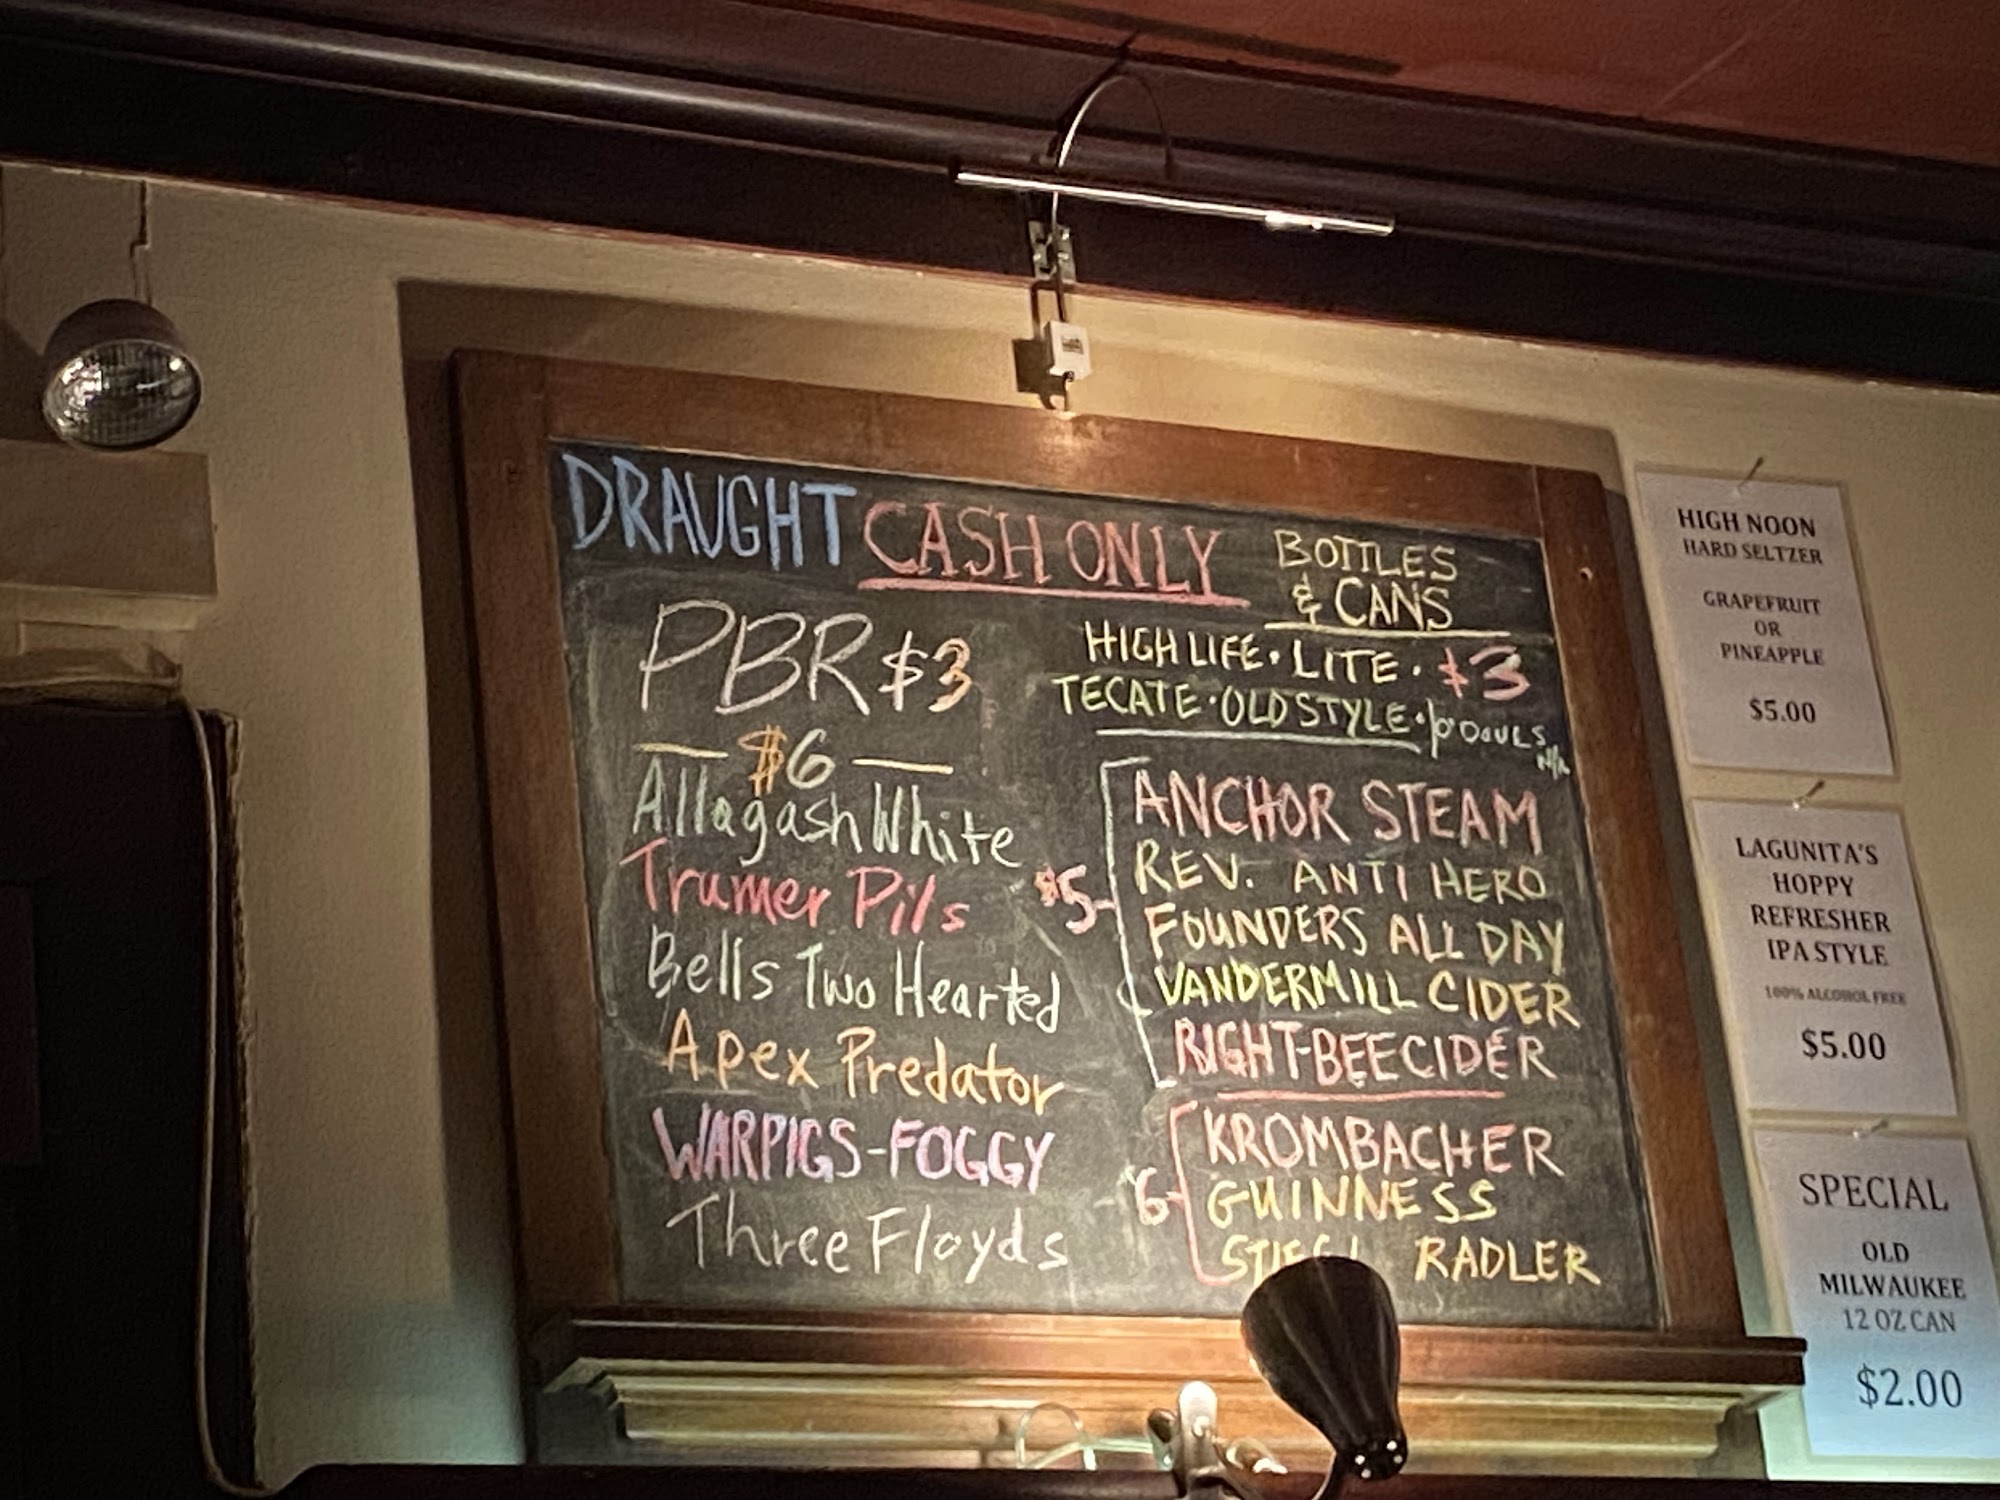 DRAUGHT CASH ONLY
PBR $3
$6
Allagash White
Trumer Pils
Bells Two Hearted
Apex Predator
WARPIGS-FOGGY
Three Floyds
BOTTLES
& CANS
HIGH LIFE · LITE · $3
TECATE · OLD STYLE · O'DOULS N/A
$5
ANCHOR STEAM
REV. ANTI HERO
FOUNDERS ALL DAY
VANDERMILL CIDER
RIGHT-BEE CIDER
6
KROMBACHER
GUINNESS
STIEGL RADLER
HIGH NOON
HARD SELTZER
GRAPEFRUIT
OR
PINEAPPLE
$5.00
LAGUNITA'S
HOPPY
REFRESHER
IPA STYLE
100% ALCOHOL FREE
$5.00
SPECIAL
OLD
MILWAUKEE
12 OZ CAN
$2.00